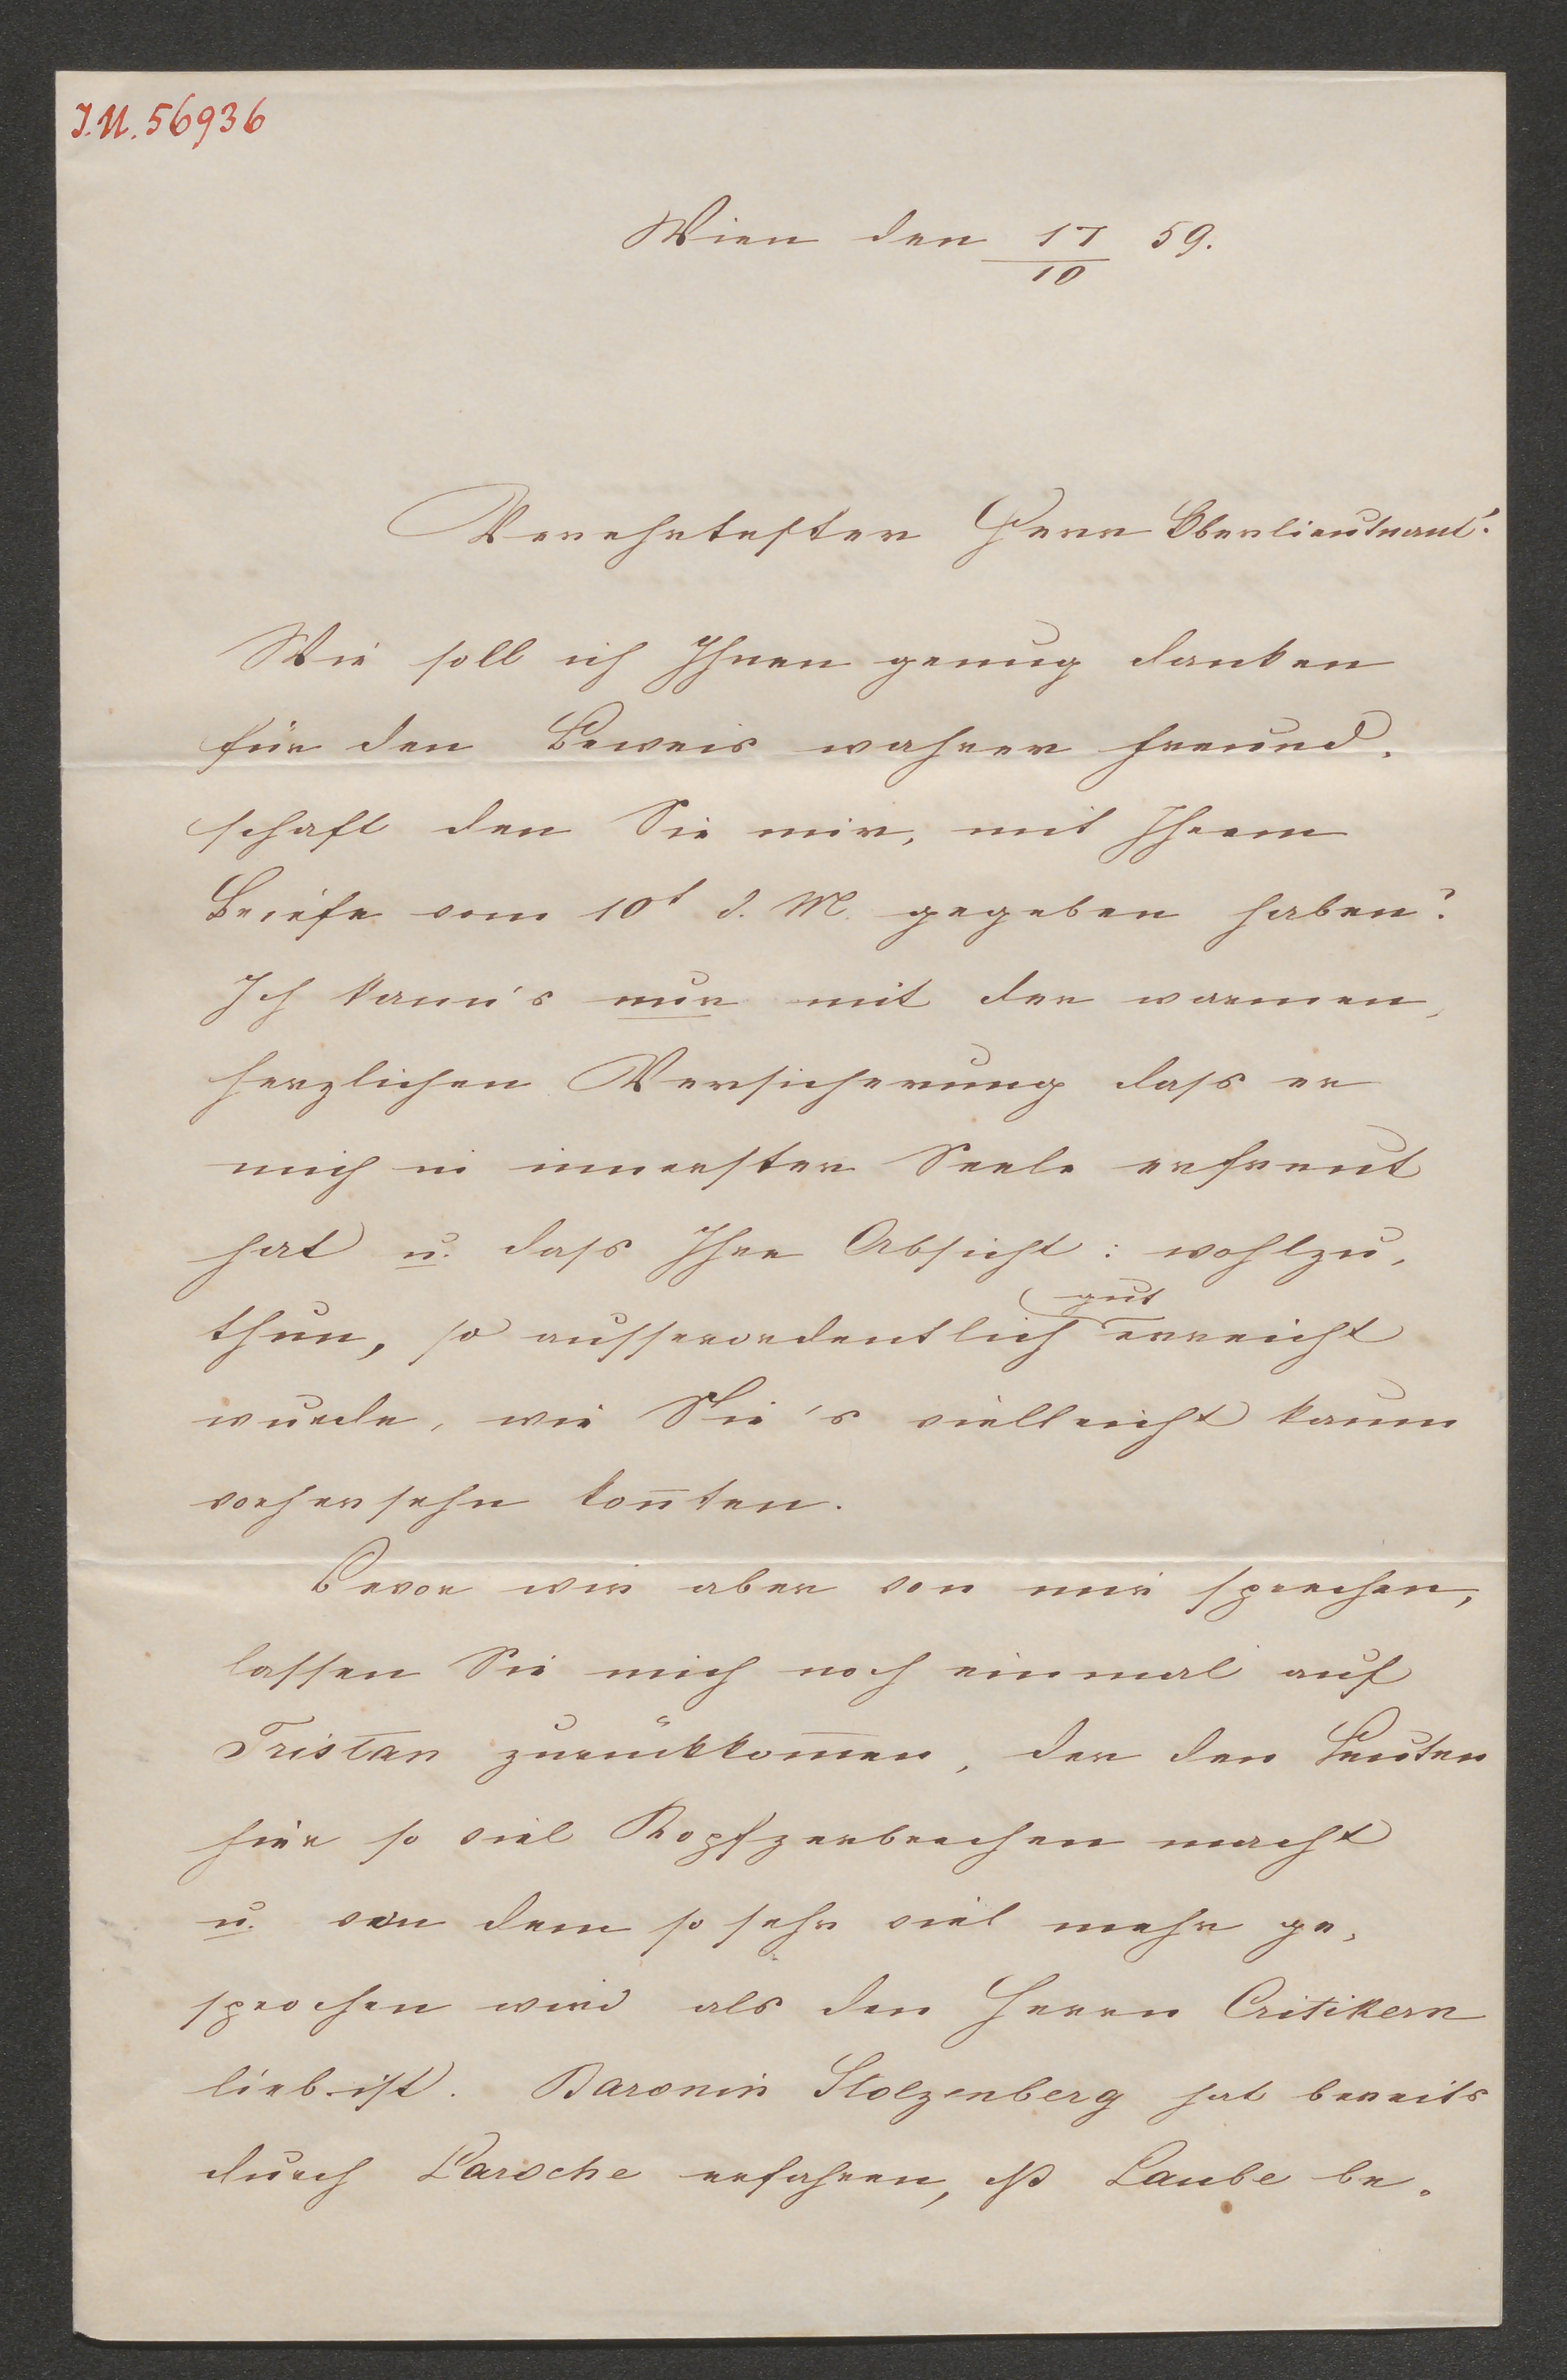 I.N. 56936
Wien den 17/10 59.
Verehrtester Herr Oberlieutnant!
Wie soll ich Ihnen genug danken
für den Beweis wahrer Freund,
schaft den Sie mir, mit Ihrem
Briefe vom 10t d. M. gegeben haben?
Ich kann's nur mit der warmen,
herzlichen Versicherung dass er
mich in innerster Seele erfreut
hat u. dass Ihre Absicht: wohlzu,
thun, so ausserordentlich gut erreicht
wurde, wie Sie's vielleicht kaum
vorhersehn kon̅ten.
Bevor wir aber von mir sprechen,
lassen Sie mich noch einmal auf
Tristan zurückkom̅en, der den Leuten
hier so viel Kopfzerbrechen macht
u. von dem so sehr viel mehr ge,
sprochen wird als den Herrn Critikern
lieb ist. Baronin Stolzenberg hat bereits
durch Laroche erfahren, dß Laube be,